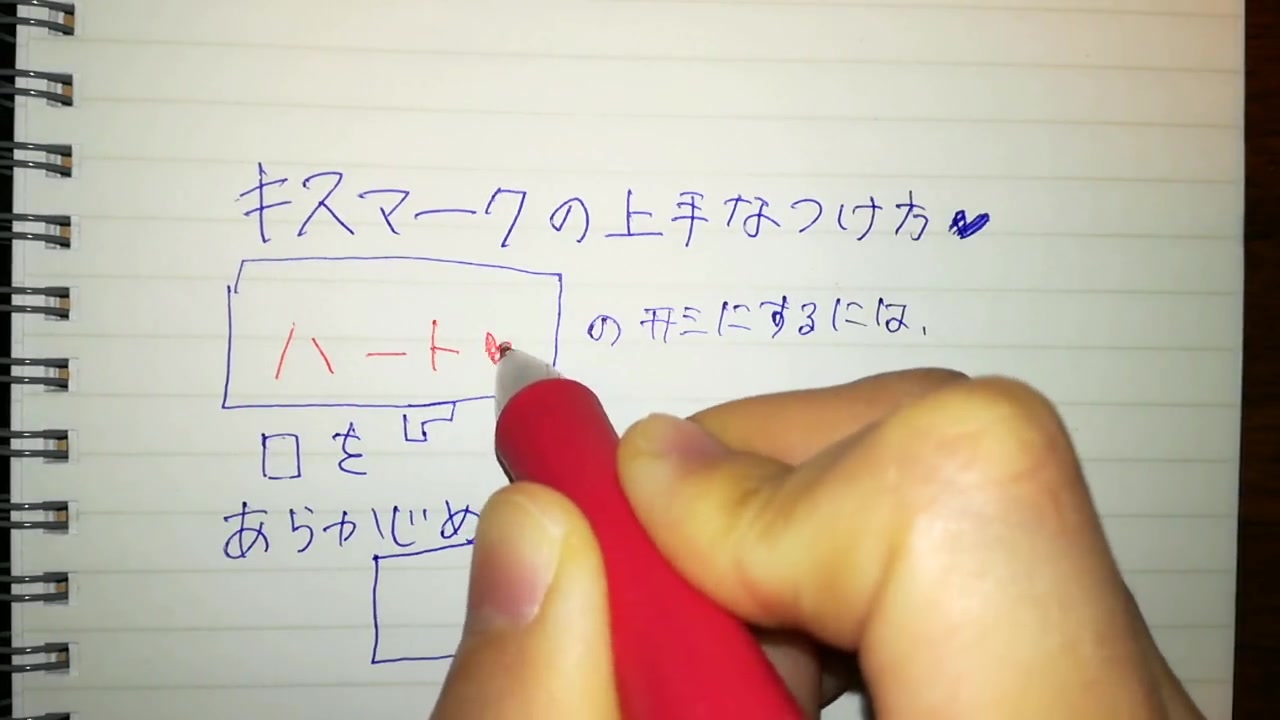 キスマークの上手なつけ方♥
ハート♥の形にするには、
口を
あらかじめ